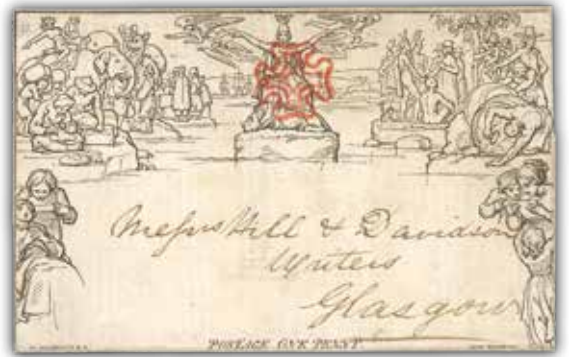 Messrs Hill & Davidson
Writers
Glasgow
POSTAGE ONE PENNY